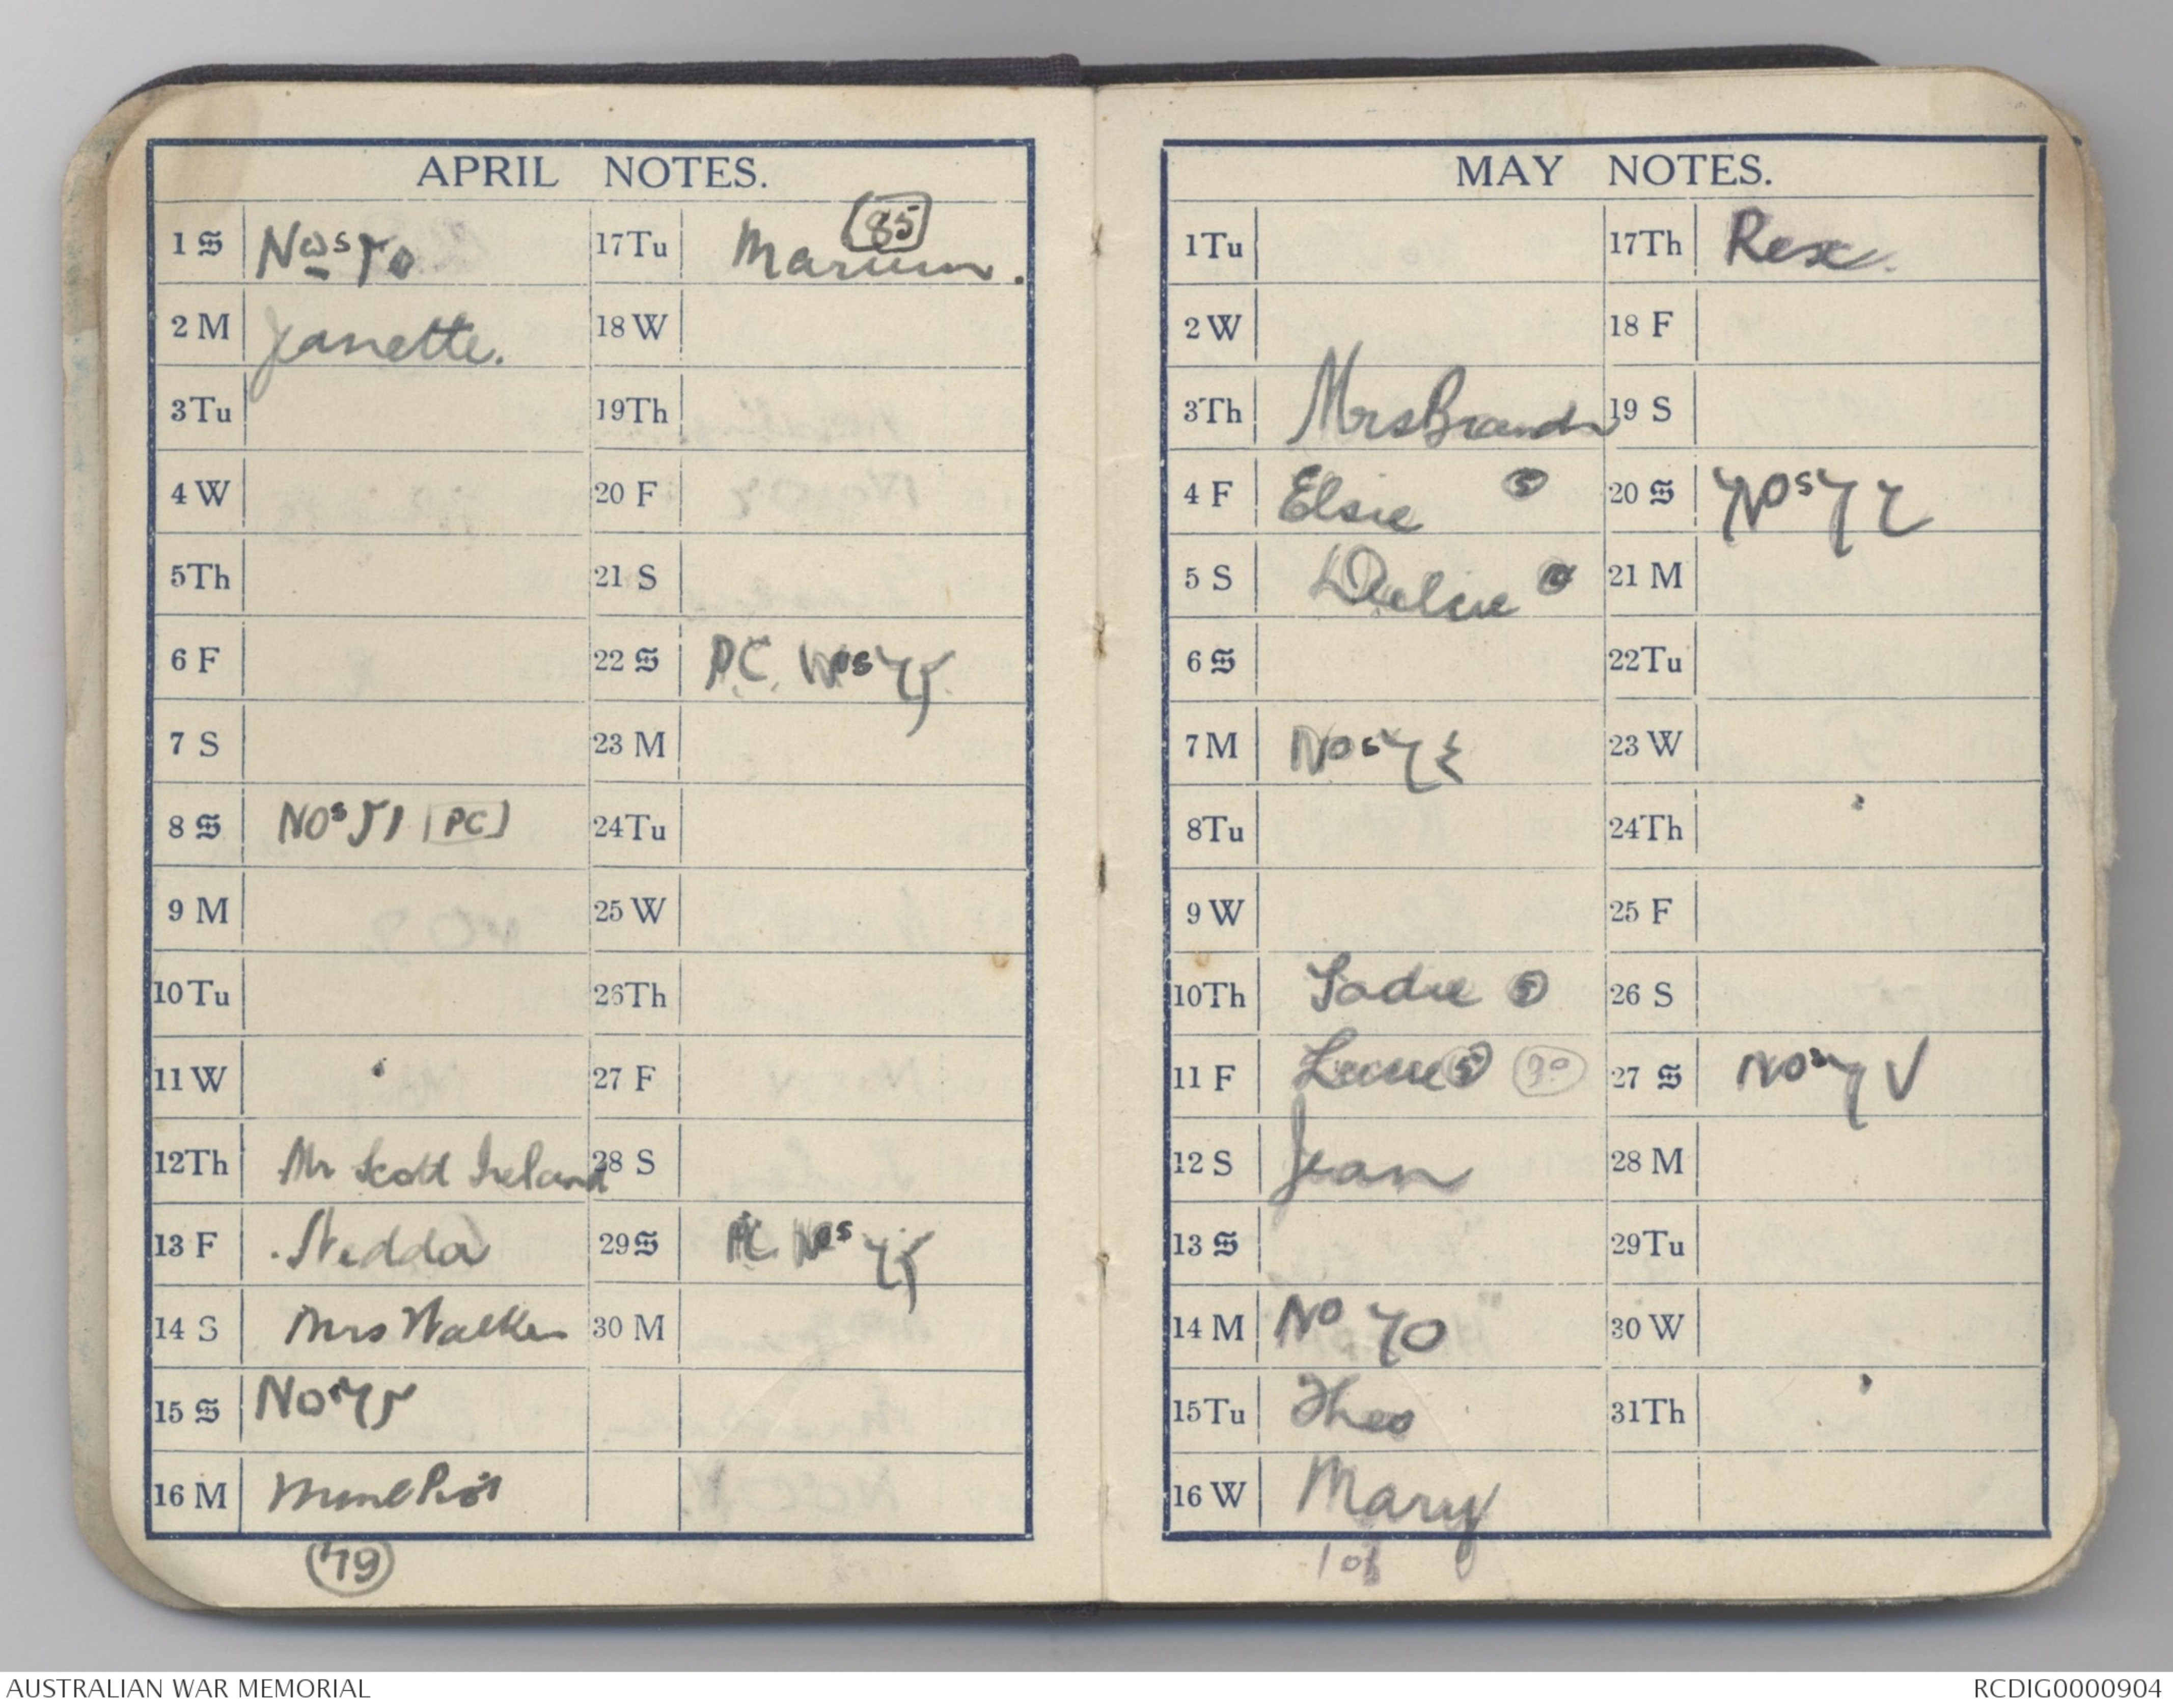 APRIL NOTES.
85
1 S Nos 50
2 M Janette.
3 Tu
4 W
5 Th
6 F
7 S
8 S Nos 51 [PC]
9 M
10 Tu
11 W
12 Th Mr Scott Ireland
13 F Nedda
14 S Mrs Walker
15 S
16 M
79
17 Tu
18 W
19 Th
20 F
21 S
22 S P.C. Nos
23 M
24 Tu
25 W
26 Th
27 F
28 S
29 S PC Nos
30 M
MAY NOTES.
1 Tu
2 W
3 Th Mrs
4 F Elsie 5
5 S
6 S
7 M Nos
8 Tu
9 W
10 Th Sadie 5
11 F 5 90
12 S Jean
13 S
14 M No 70
15 Tu Theo
16 W Mary
17 Th Rex.
18 F
19 S
20 S Nos 72
21 M
22 Tu
23 W
24 Th
25 F
26 S
27 S Nos
28 M
29 Tu
30 W
31 Th
AUSTRALIAN WAR MEMORIAL
RCDIG0000904